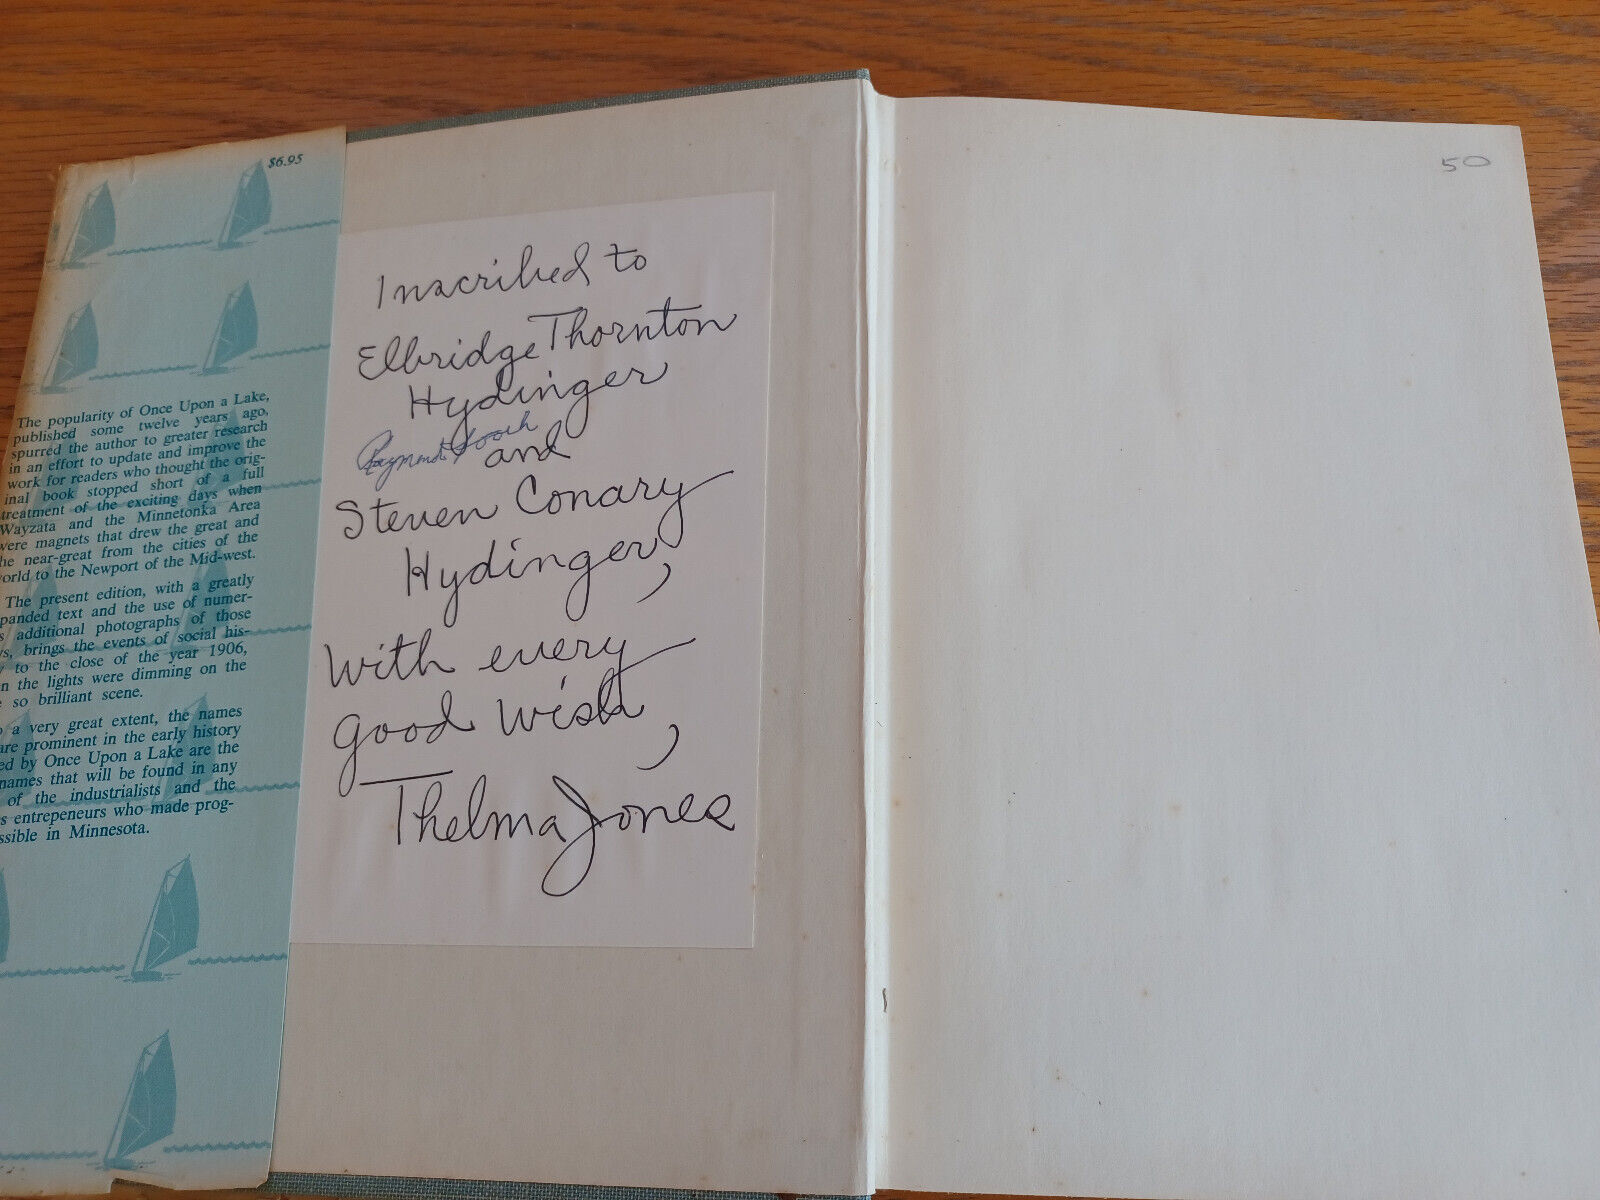 $6.95
The popularity of Once Upon a Lake,
published some twelve years ago,
spurred the author to greater research
in an effort to update and improve the
work for readers who thought the orig-
inal book stopped short of a full
treatment of the exciting days when
Wayzata and the Minnetonka Area
were magnets that drew the great and
he near-great from the cities of the
orld to the Newport of the Mid-west.
The present edition, with a greatly
panded text and the use of numer-
s additional photographs of those
s, brings the events of social his-
to the close of the year 1906,
n the lights were dimming on the
so brilliant scene.
a very great extent, the names
are prominent in the early history
ed by Once Upon a Lake are the
names that will be found in any
of the industrialists and the
s entrepeneurs who made prog-
ssible in Minnesota.
Inscribed to
Elbridge Thornton
Hydinger
Raymond
and
Steven Conary
Hydinger,
With every
good wish,
Thelma Jones
50